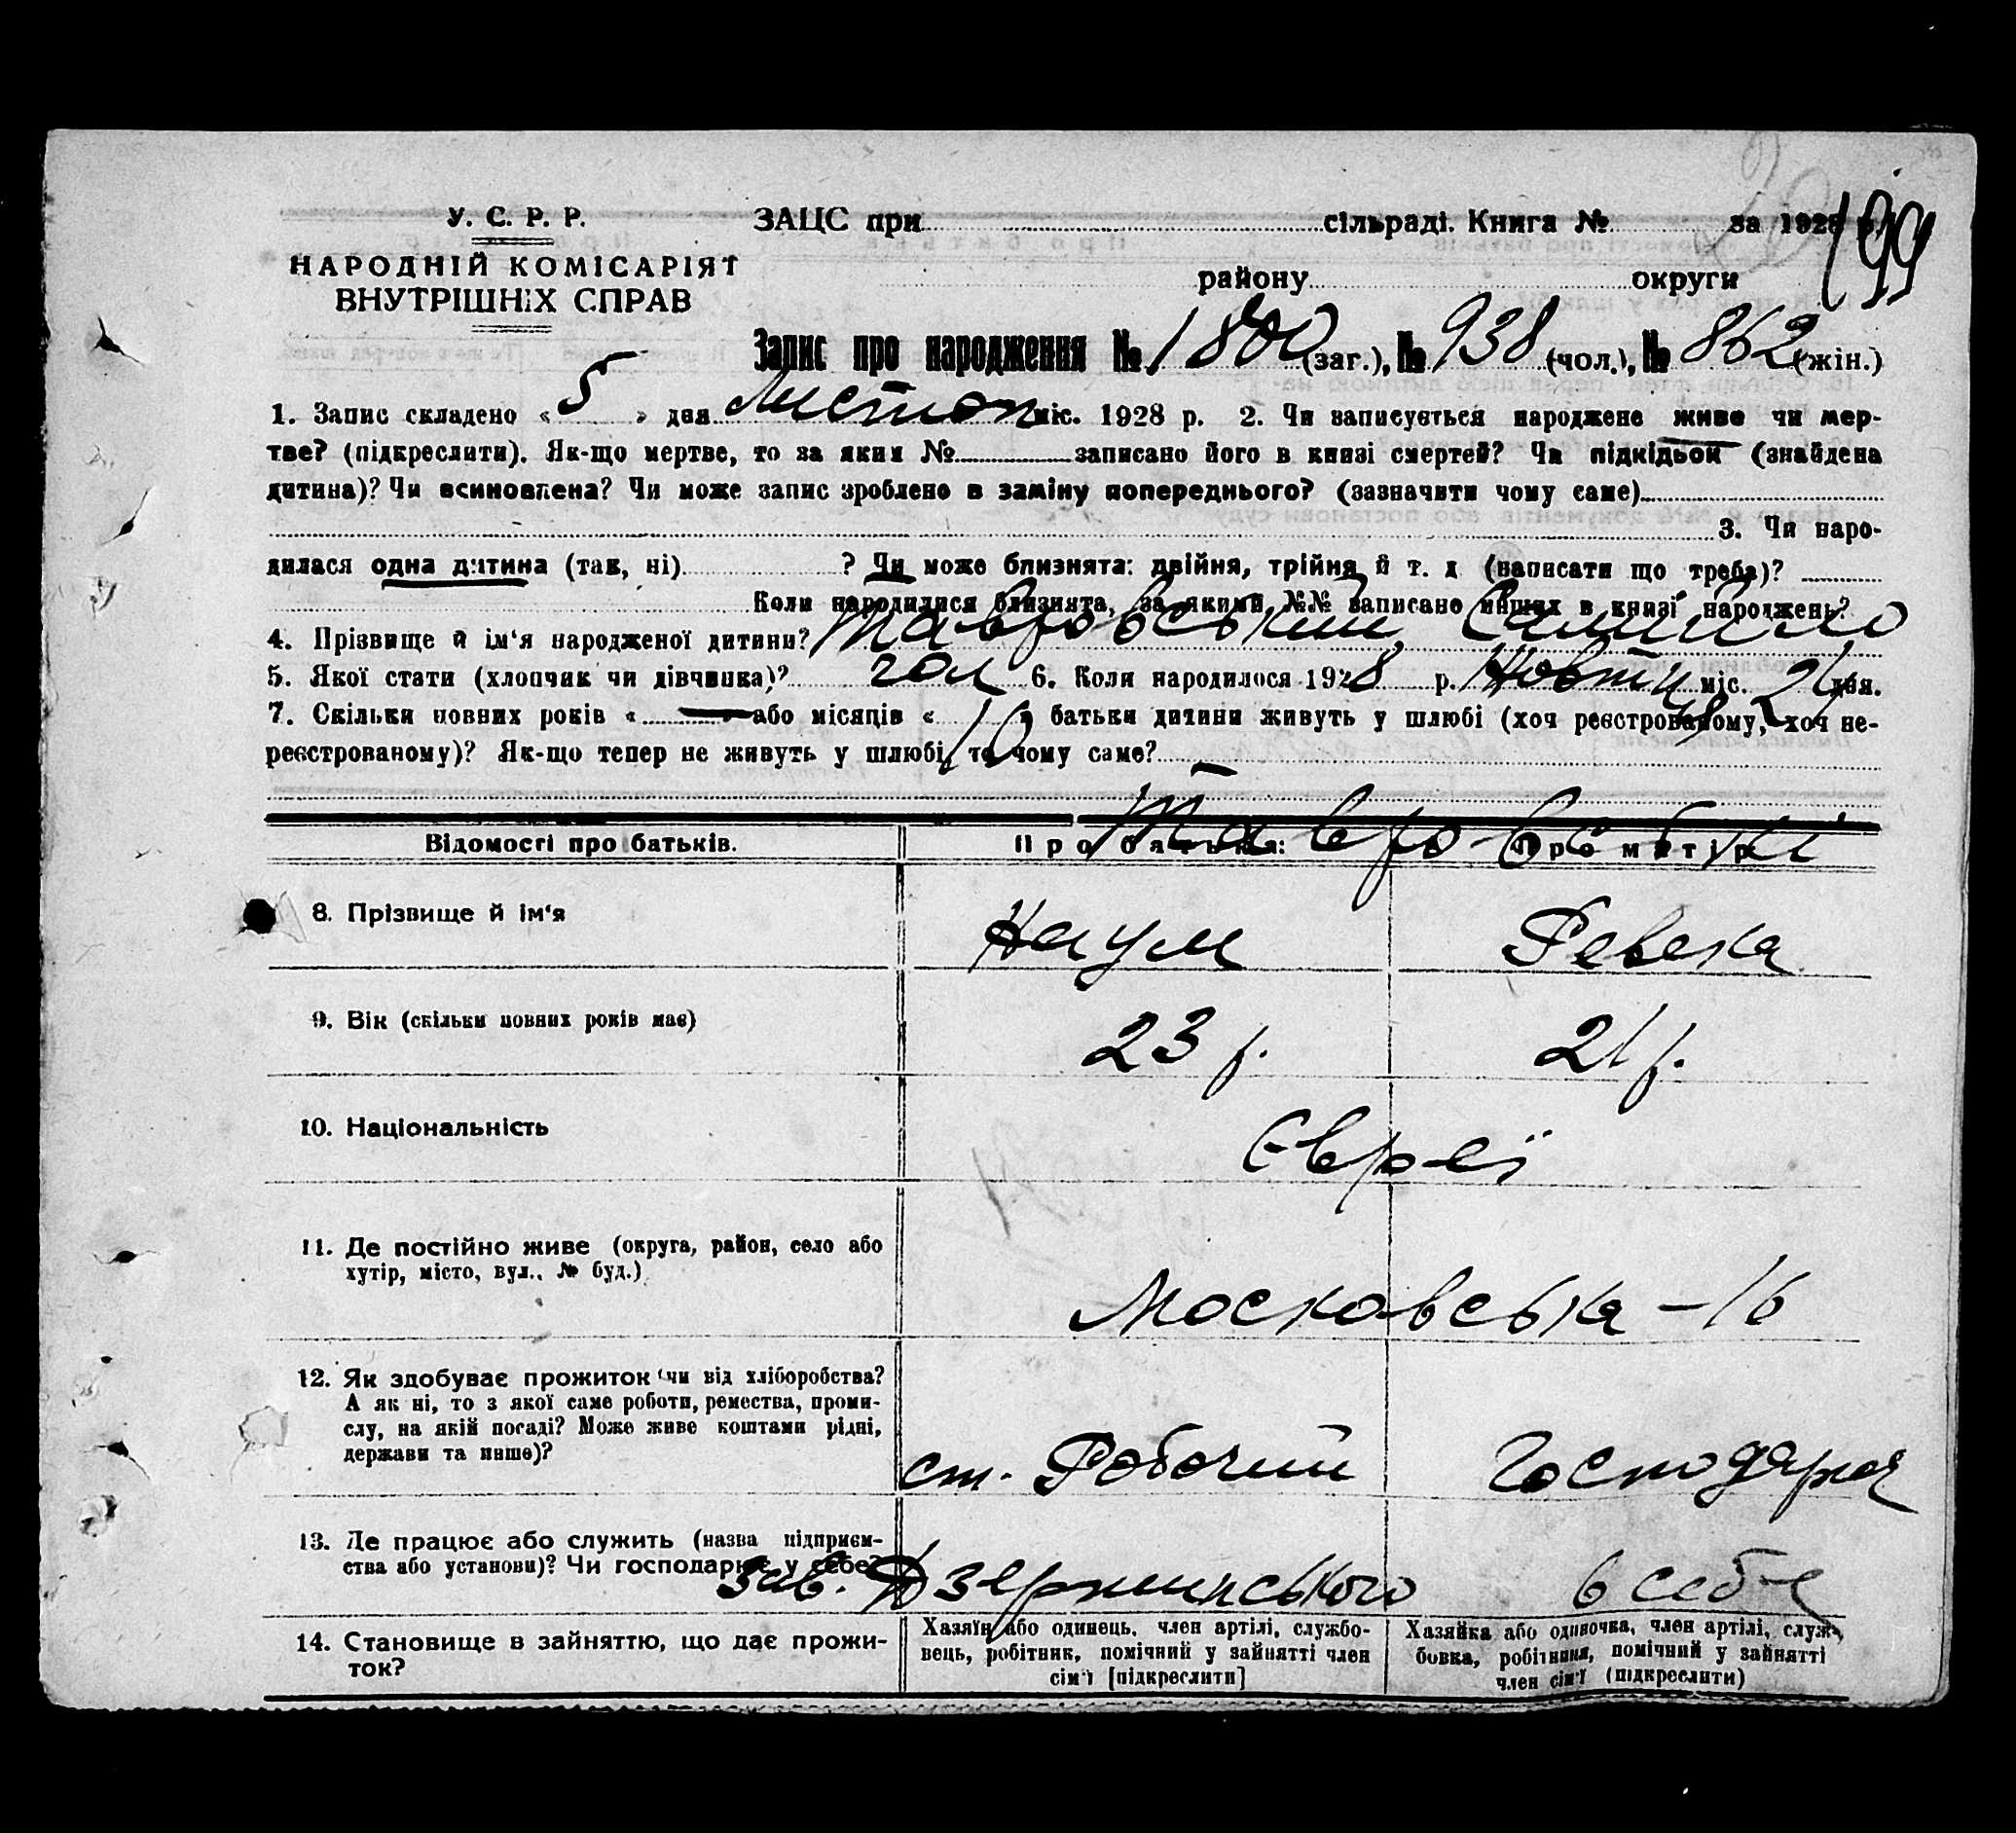 199
У. С. Р. Р. ЗАЦС при сільраді. Книга № за 1928 р.
НАРОДНІЙ КОМІСАРІЯТ району округи
ВНУТРІШНІХ СПРАВ
Запис про народження № 1800 (заг.), № 938 (чол.), № 862 (жін.)
1. Запис складено « 5 » дня Листоп міс. 1928 р. 2. Чи записується народжене живе чи мер-
тве? (підкреслити). Як-що мертве, то за яким № записано його в книзі смертей? Чи підкідьок (знайдена
дитина)? Чи всиновлена? Чи може запис зроблено в заміну попереднього? (зазначити чому саме)
3. Чи наро-
дилася одна дитина (так, ні) ? Чи може близнята: двійня, трійня й т. д (написати що треба)?
Коли народилися близнята, за якими №№ записано инших в книзі народжень?
4. Прізвище й ім‘я народженої дитини? Тавровський
5. Якої статі (хлопчик чи дівчинка)? чол 6. Коли народилося 1928 р. Жовтн міс. 24 дня.
7. Скільки повних років « — » або місяців « 10 » батьки дитини живуть у шлюбі (хоч реєстрованому, хоч не-
реєстрованому)? Як-що тепер не живуть у шлюбі, то чому саме?
Тавровські
Відомості про батьків. Про батька: Про матір:
8. Прізвище й ім‘я Наум Ревека
9. Вік (скільки повних років має) 23 р. 21 р.
10. Національність Євреї
11. Де постійно живе (округа, район, село або
хутір, місто, вул., № буд.) Московська – 16
12. Як здобуває прожиток (чи від хліборобства?
А як ні, то з якої саме роботи, ремества, проми-
слу, на якій посаді? Може живе коштами рідні,
держави та инше)? ст. Робочий Господарка
13. Де працює або служить (назва підприєм-
ства або установи)? Чи господарює у себе? Зав. Дзержинського в себе
14. Становище в зайняттю, що дає прожи-
ток?
Хазяїн або одинець, член артілі, службо-
вець, робітник, помічний у зайнятті член
сім‘ї [підкреслити]
Хазяйка або одиночка, член артілі, служ-
бовка, робітниця, помічний у зайнятті
член сім‘ї (підкреслити)